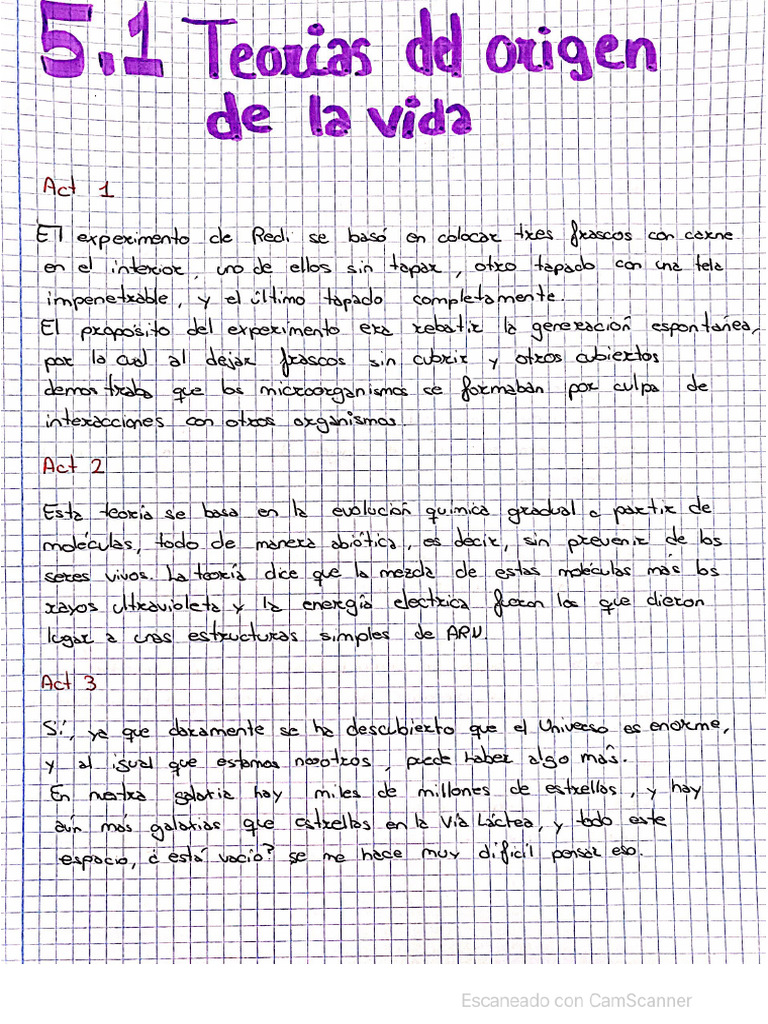 5.1 Teorías del origen
de la vida
Act 1
El experimento de Redi se basó en colocar tres frascos con carne
en el interior, uno de ellos sin tapar, otro tapado con una tela
impenetrable, y el último tapado completamente.
El proposito del experimento era rebatir la generación espontánea,
por la cual al dejar frascos sin cubrir y otros cubiertos
demostraba que los microorganismos se formaban por culpa de
interacciones con otros organismos.
Act 2
Esta teoría se basa en la evolución química gradual a partir de
moléculas, todo de manera abiótica, es decir, sin prevenir de los
seres vivos. La teoría dice que la mezcla de estas moléculas más los
rayos ultravioleta y la energía electrica fueron los que dieron
lugar a unas estructuras simples de ARN.
Act 3
Sí, ya que claramente se ha descubierto que el Universo es enorme,
y al igual que estamos nosotros, puede haber algo más.
En nuestra galaxia hay miles de millones de estrellas, y hay
aún más galaxias que estrellas en la Vía Láctea, y todo este
espacio, ¿está vacío? se me hace muy difícil pensar eso.
Escaneado con CamScanner